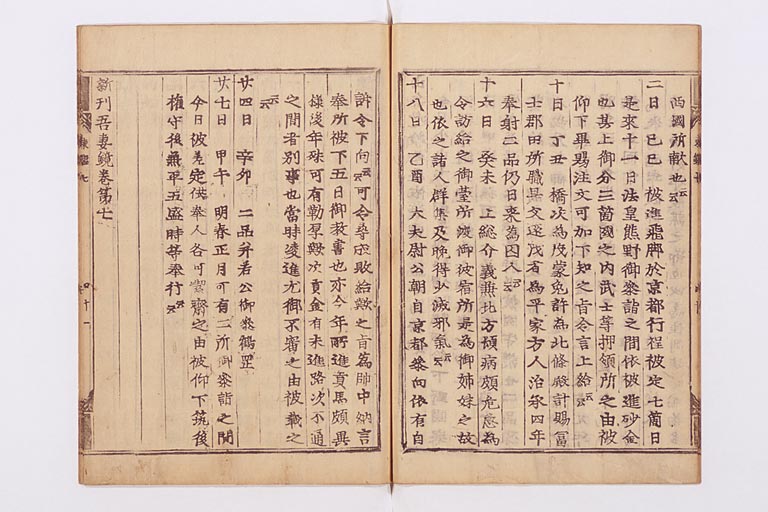 西國所歟也云々
二日 己巳 被進飛脚於京都行程被定七箇日
是來十一日法皇熊野御參詣之間依被進砂金
也其上御分三箇國之内武士等押領所之由被
仰下畢賜注文可加下知之旨令言上給云々
十日 丁丑 橘次為茂蒙免許為北條殿計賜冨
士郡田所職是父遠茂有為平家方人治承四年
奉射二品仍日來為囚人云々
十六日 癸未 上総介義兼北方頓病頗危急為
令訪給之御堂所渡御彼宿所是為御姉妹之故
也依之諸人群集及晩得少減邪氣云々
十八日 乙酉 大夫尉公朝自京都參向依有自
訴令下向云々可令尋成敗給歟之旨為師中納言
奉所被下五日御教書也亦今年所進貢馬頗異
様後年殊可有勒厚歟次貢金有未進路次不通
之間者別事也當時凌進尤御不審之由被載之
云々
廿四日 辛卯 二品并若公御參鶴岡
廿七日 甲午 明春正月可有二所御參詣之間
今日彼差定供奉人各可潔齋之由被仰下筑後
権守後兼平五盛時等奉行云々
新刊吾妻鏡卷第七
四十一